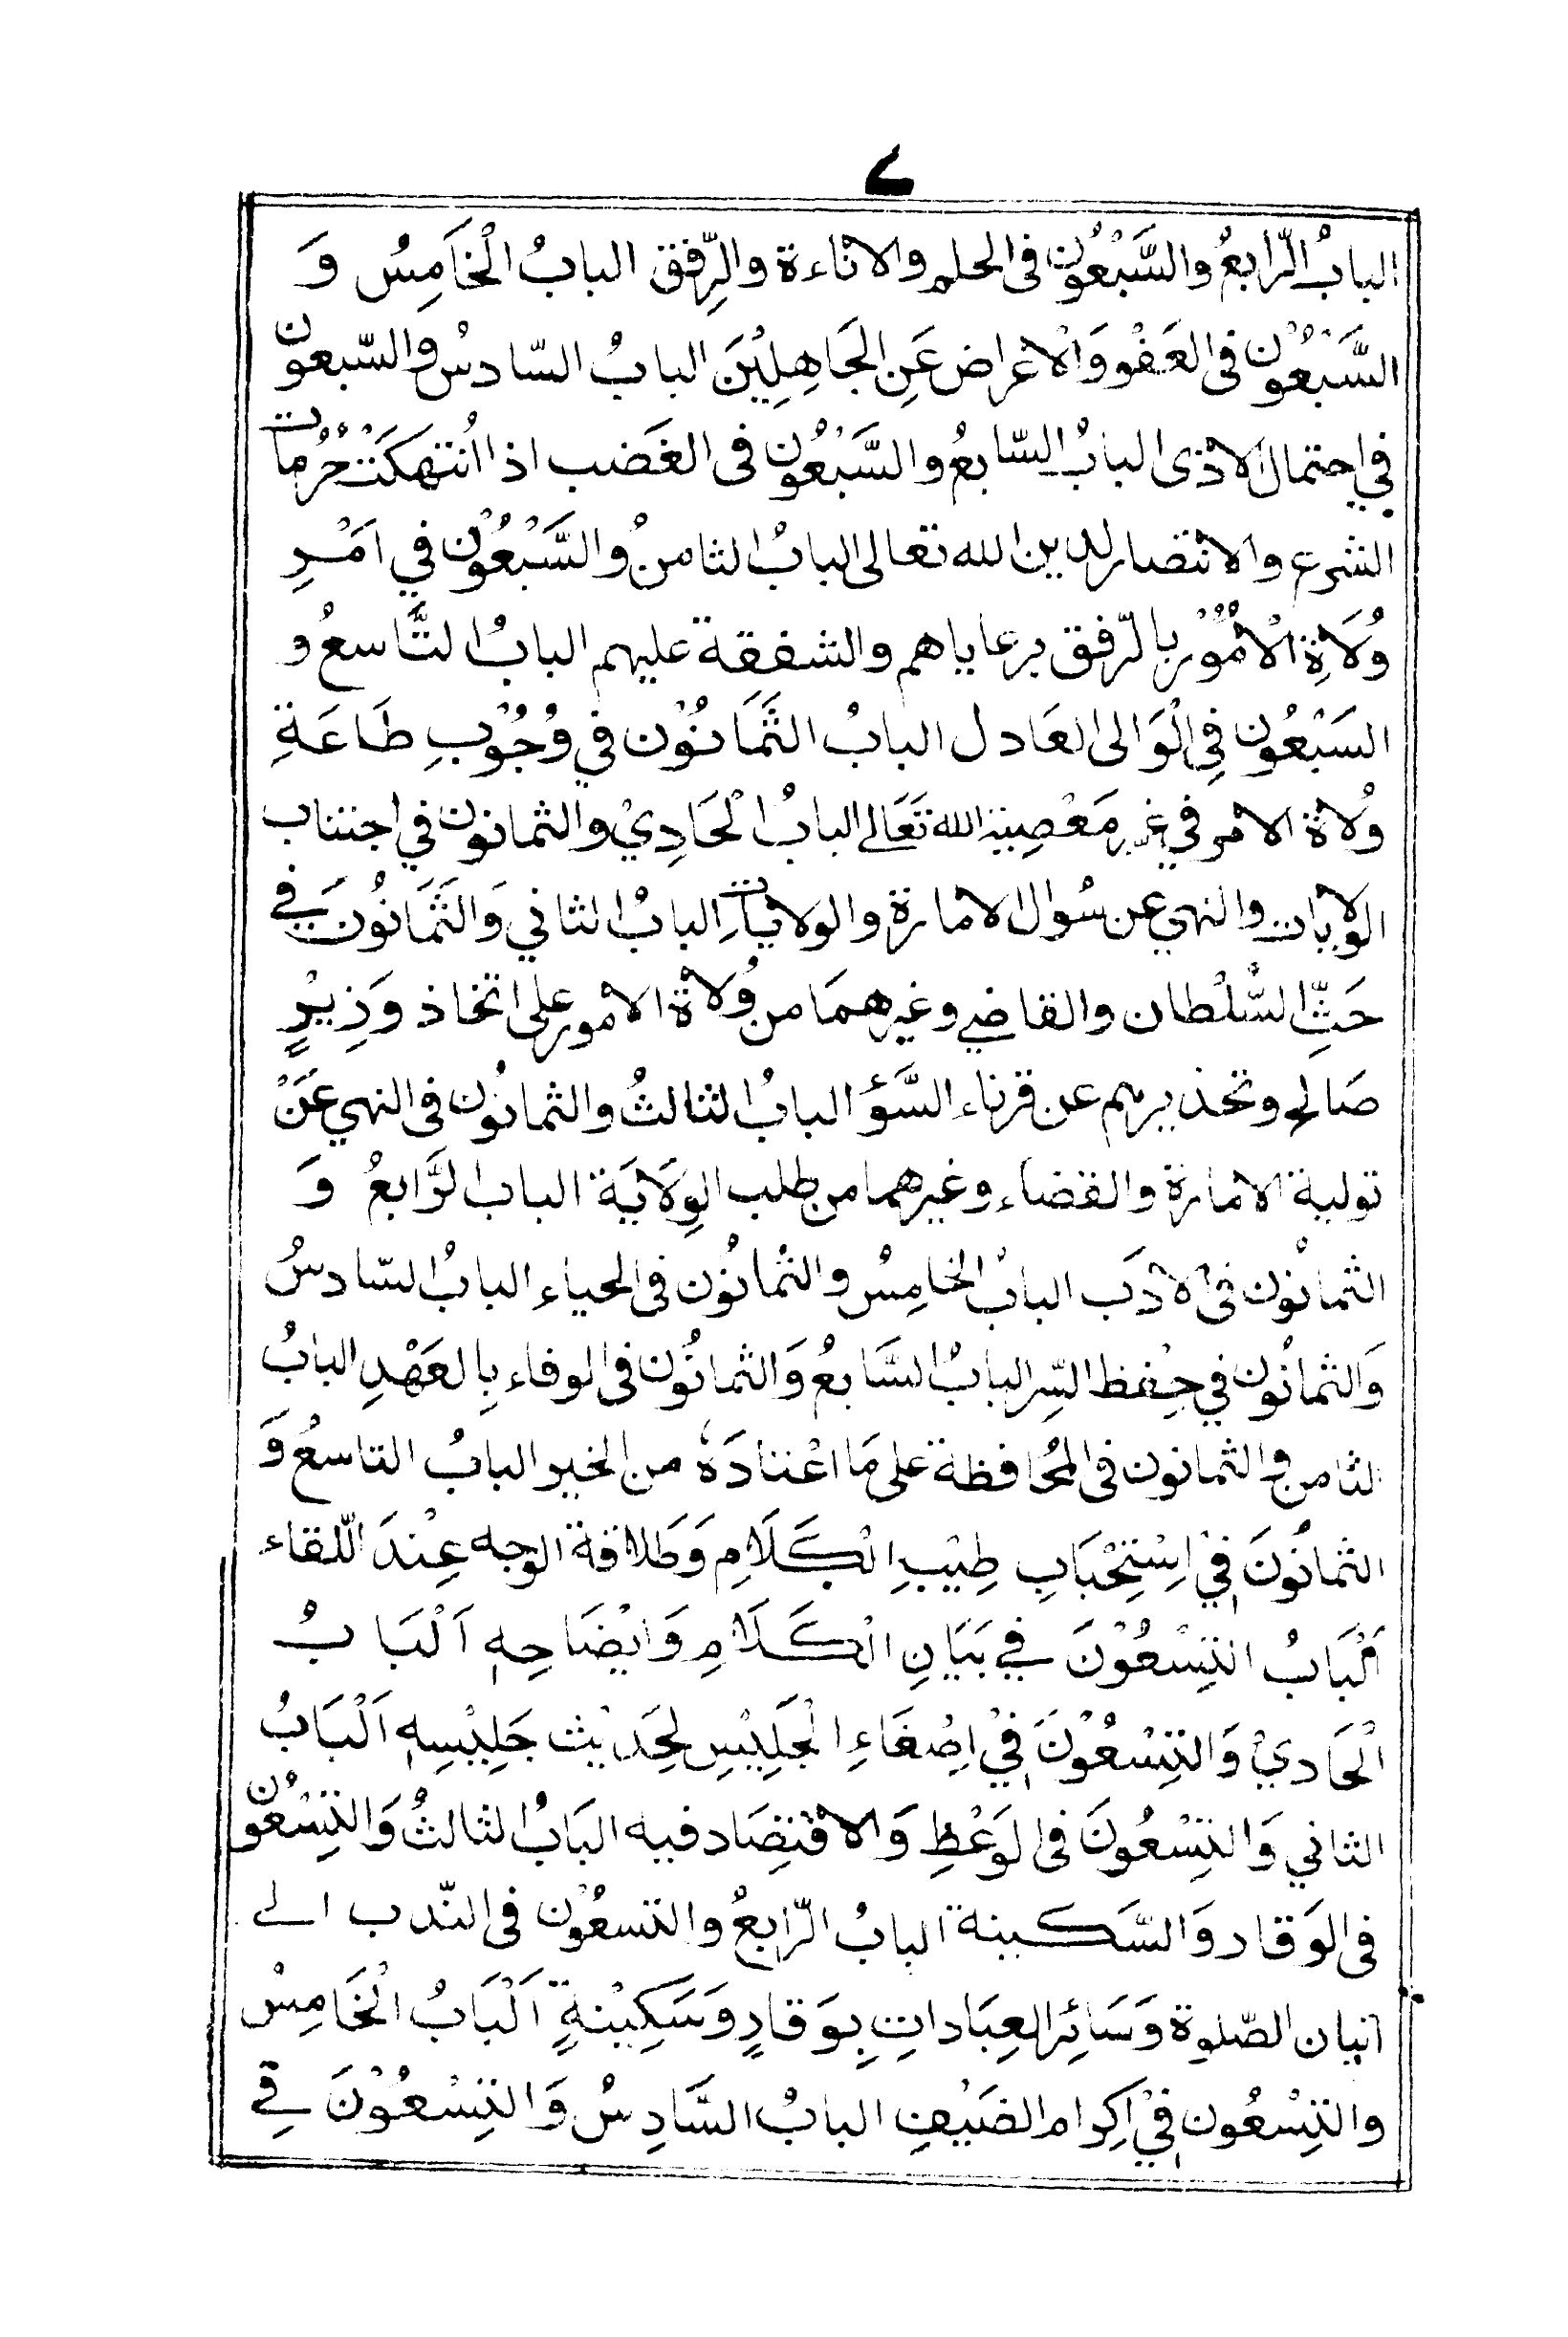 ے
البابُ الرّابعُ والسَّبْعُوْن فى الحلم والاناءة والرِّفق البابُ الْخَامِسُ وَ
السَّبْعُوْن فى العَفْو وَالْاعراض عَنِ الجَاهِلِيْنَ البابُ السّادسُ والسّبعون
في احتمال الاذى البابُ السّابعُ والسَّبْعُون فى الغَضب اذا انُتهكَتْ حُرُمات
الشرع والانتصار لدين الله تعالى البابُ الثامنُ والسَّبْعُوْن في اَمْرِ
وُلَاةِ الْاُمُوْر بالرّفق برعاياهم والشفقة عليهم البابُ التَّاسعُ و
السَبْعُون فِي الْوَالى العَادل البابُ الثَّمَانُوْن في وُجُوْبِ طَاعَةِ
وُلاة الامر في غير مَعْصِيَة الله تَعَالے البابُ الْحَادِيْ والثمانون في اجتناب
الولايات والنهي عن سُوال الامارة والولايات البابُ الثاني وَالثَّمَانُوْنَ في
حَثِّ السُّلْطان والقاضي وغيرهمَا من وُلاة الامور على اتخاذ وَزِيْرٍ
صَالح وتحذيرهم عن قرناء السَّوْء البابُ الثالثُ والثمانُون فى النهي عَنْ
تولية الامارة والقضاء وغيرهما من طلب الوِلَايَة الباب الرَّابعُ وَ
الثمانُون فى الادَب البابُ الخامِسُ والثمانُون فى الحياء البابُ السّادسُ
وَالثمانُون في حِفظ السِّر البابُ السَّابعُ وَالثمانُون فى الوفاء بِالعَهْدِ البابُ
الثامن والثمانون فى المُحافظة على مَا اعْتادَهٗ من الخير البابُ التاسعُ وَ
الثمانُونَ فِيْ اِسْتِحْبَابِ طِيْبِ الْكَلَامِ وَطَلاقة الوجه عِنْدَ اللّقاء
اَلْبَابُ التِسْعُوْنَ في بَيَانِ الْكَلَامِ وَايْضَاحِهِ اَلْبَابُ
الْحَاديْ وَالتِسْعُوْنَ فِيْ اِصْغَاءِ الْجَلِيْسِ لِحَدِيْث جَلِيْسِهِ اَلْبَابُ
الثاني وَالتِسْعُونَ فى الوَعْظِ وَالاقتِصَاد فيه البَابُ الثالثُ وَالتِسْعُوْن
فى الوَقار وَالسَّكينة البابُ الرّابعُ والتسعُوْن فى النّدب الے
اتيان الصّلوة وَسَائِر العِبَاداتِ بِوَقارٍ وَسَكِيْنةٍ اَلْبَابُ الْخَامِسْ
والتِسْعُون فِيْ اكرام الضَيْفِ البابُ السَّادِسُ وَالتِسْعُوْنَ فِي